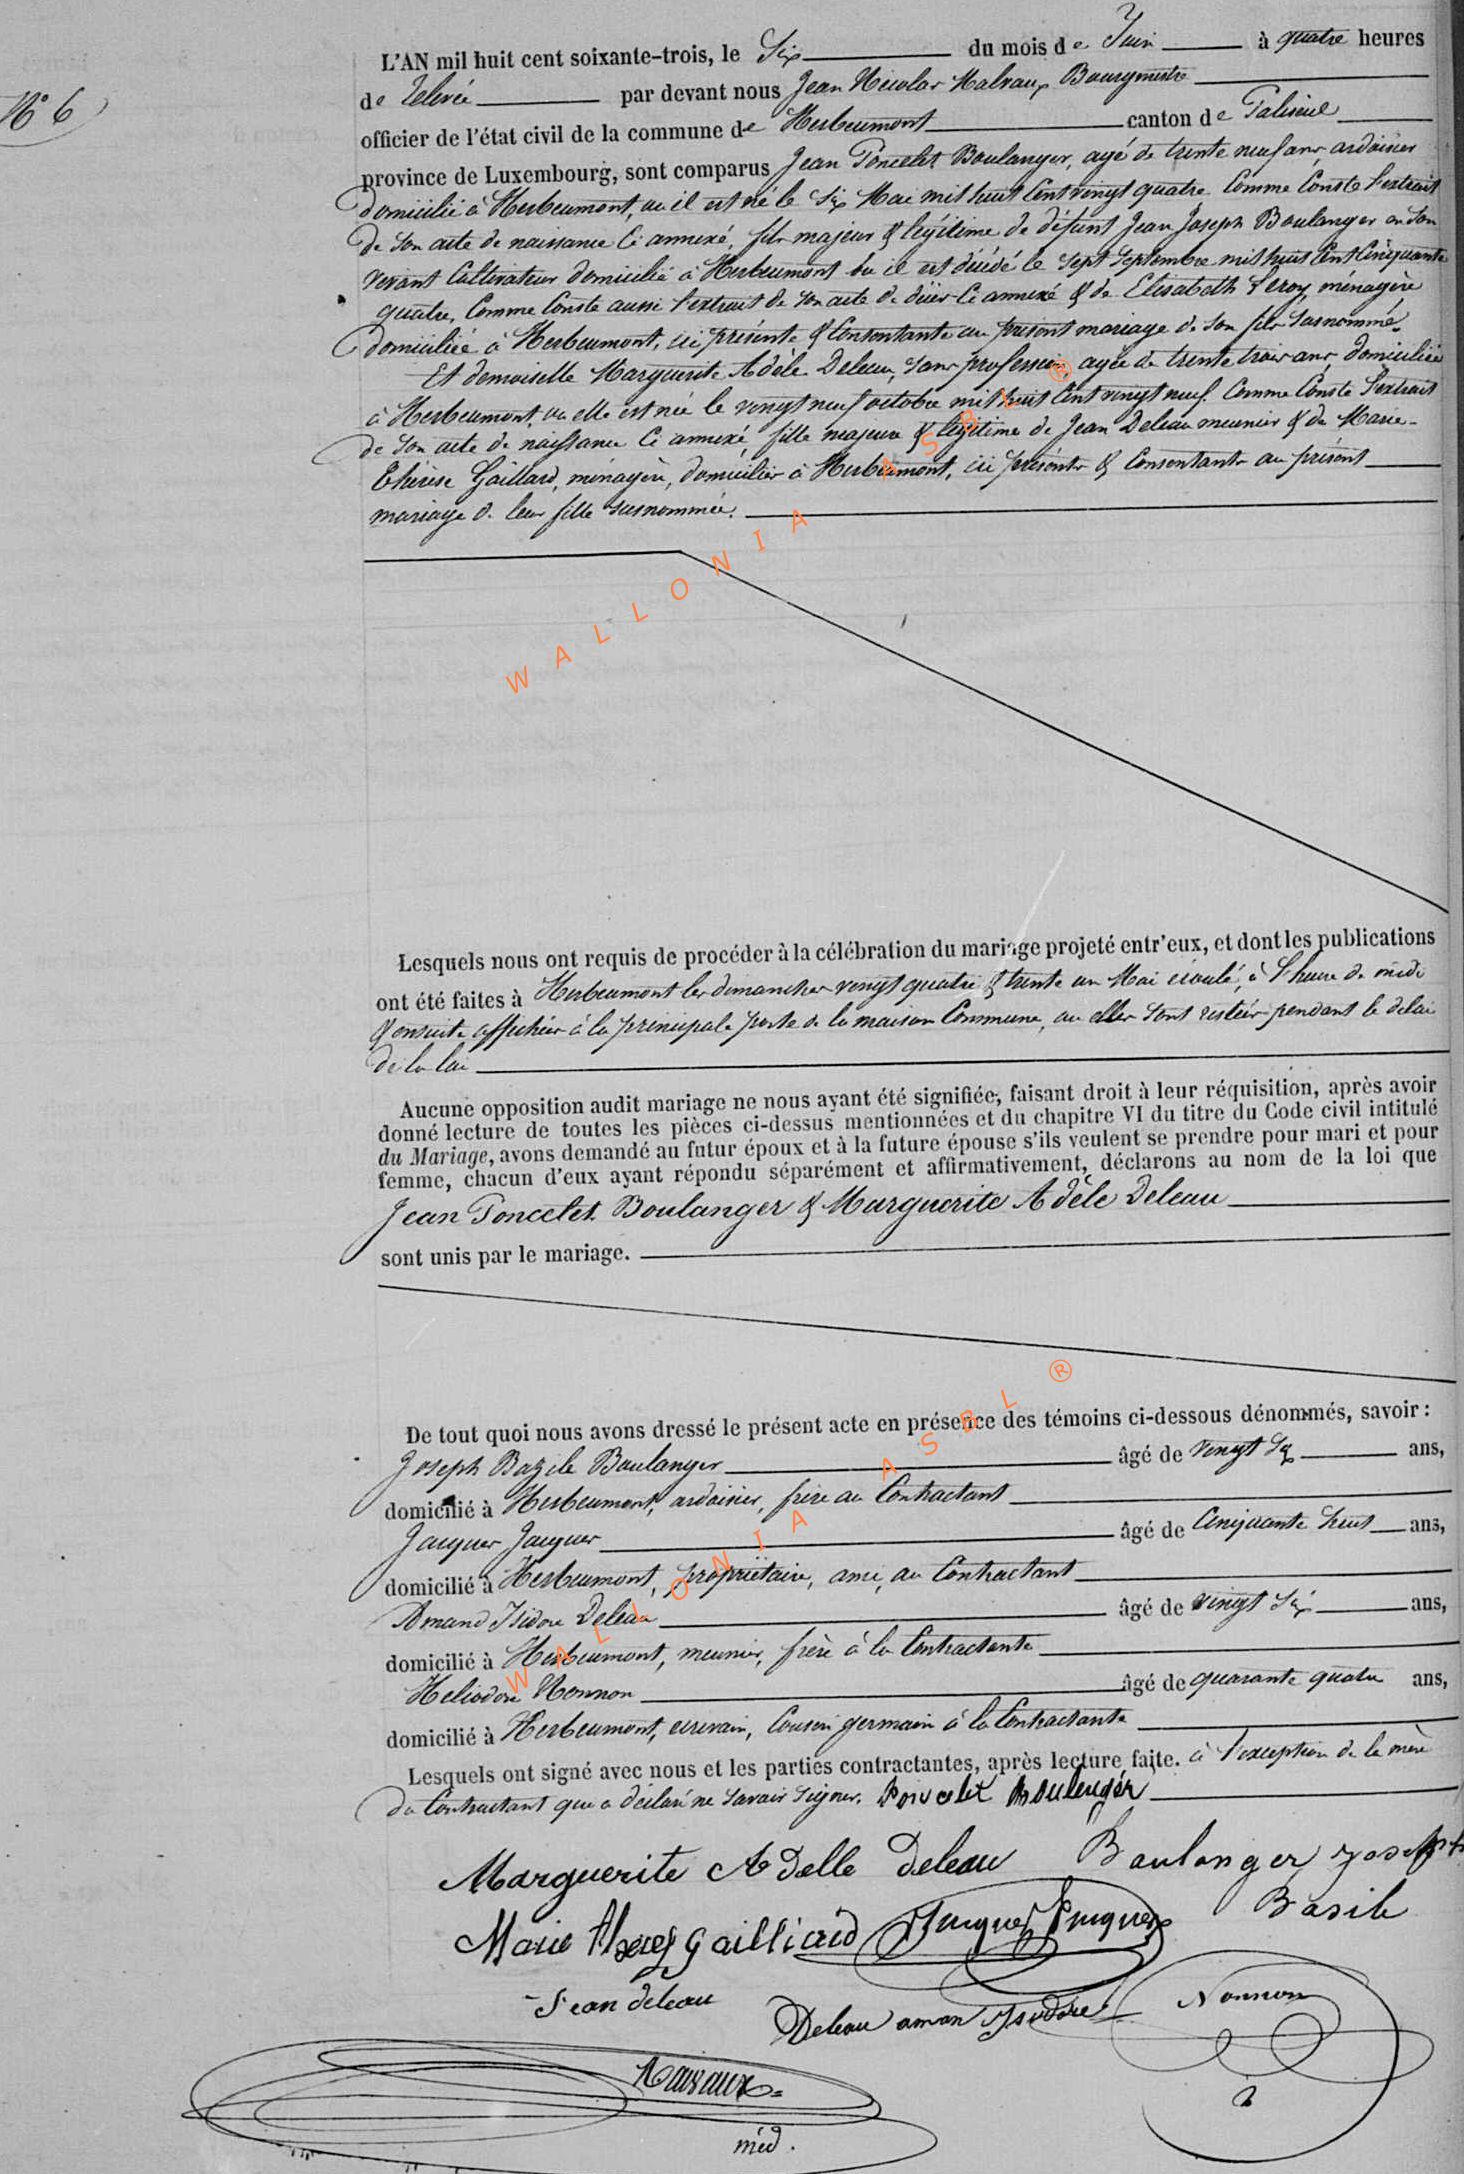 N° 6
L'AN mil huit cent soixante-trois, le Six du mois de Juin à quatre heures
de relevée par devant nous Jean Nicolas Malvaux Bourgmestre
officier de l'état civil de la commune de Herbeumont canton de Paliseul
province de Luxembourg, sont comparus Jean Poncelet Boulanger, agé de trente neuf ans, ardoisier
domicilié à Herbeumont, ou il est né le Six Mai mil huit Cent vingt quatre Comme Conste l'extrait
de son acte de naissance Ci annexé, fils majeur & légitime de défunt Jean Joseph Boulanger en son
vivant Cultivateur domicilié à Herbeumont ou il est décédé le Sept Septembre mil huit Cent Cinquante
quatre, Comme Conste aussi l'extrait de son acte de décès Ci annexé & de Elisabeth Leroy, ménagère
domiciliée à Herbeumont, ici présente & Consentante au présent mariage de son fils Susnommé.
Et demoiselle Marguerite Adèle Deleau, sans profession, agée de trente trois ans, domiciliée
à Herbeumont, ou elle est née le vingt neuf octobre mil huit Cent vingt neuf. Comme Conste l'extrait
de son acte de naissance Ci annexé fille majeure & légitime de Jean Deleau meunier & de Marie-
Thérèse Gaillard, ménagère, domiciliés à Herbeumont, ici présents & Consentants au présent
mariage de leur fille susnommée.
WALLONIA ASBL ®
Lesquels nous ont requis de procéder à la célébration du mariage projeté entr'eux, et dont les publications
ont été faites à Herbeumont les dimanches vingt quatre & trente un Mai écoulé, à l'heure de midi
& ensuite affichées à la principale porte de la maison Commune, ou elles sont restées pendant le délai
de la loi
Aucune opposition audit mariage ne nous ayant été signifiée, faisant droit à leur réquisition, après avoir
donné lecture de toutes les pièces ci-dessus mentionnées et du chapitre VI du titre du Code civil intitulé
du Mariage, avons demandé au futur époux et à la future épouse s'ils veulent se prendre pour mari et pour
femme, chacun d'eux ayant répondu séparément et affirmativement, déclarons au nom de la loi que
Jean Poncelet Boulanger & Marguerite Adèle Deleau
sont unis par le mariage.
De tout quoi nous avons dressé le présent acte en présence des témoins ci-dessous dénommés, savoir :
Joseph Bazile Boulanger âgé de vingt Six ans,
domicilié à Herbeumont, ardoisier, frère au Contractant
Jacques Jacques âgé de Cinquante huit ans,
domicilié à Herbeumont, propriétaire, ami, au Contractant
Amand Isidore Deleau âgé de vingt Six ans,
domicilié à Herbeumont, meunier, frère à la Contractante
Heliodore Nonnon âgé de quarante quatre ans,
domicilié à Herbeumont, écrivain, Cousin germain à la Contractante
Lesquels ont signé avec nous et les parties contractantes, après lecture faite. à l'exception de la mère
du Contractant que a déclaré ne savoir signer. Poncelet Boulenger
Marguerite Adelle Deleau Boulanger Joseph
Basile
Marie Gailliard Jacques Jacques
Jean deleau
Deleau aman Isidore Nonnon
WALLONIA ASBL ®
Malvaux